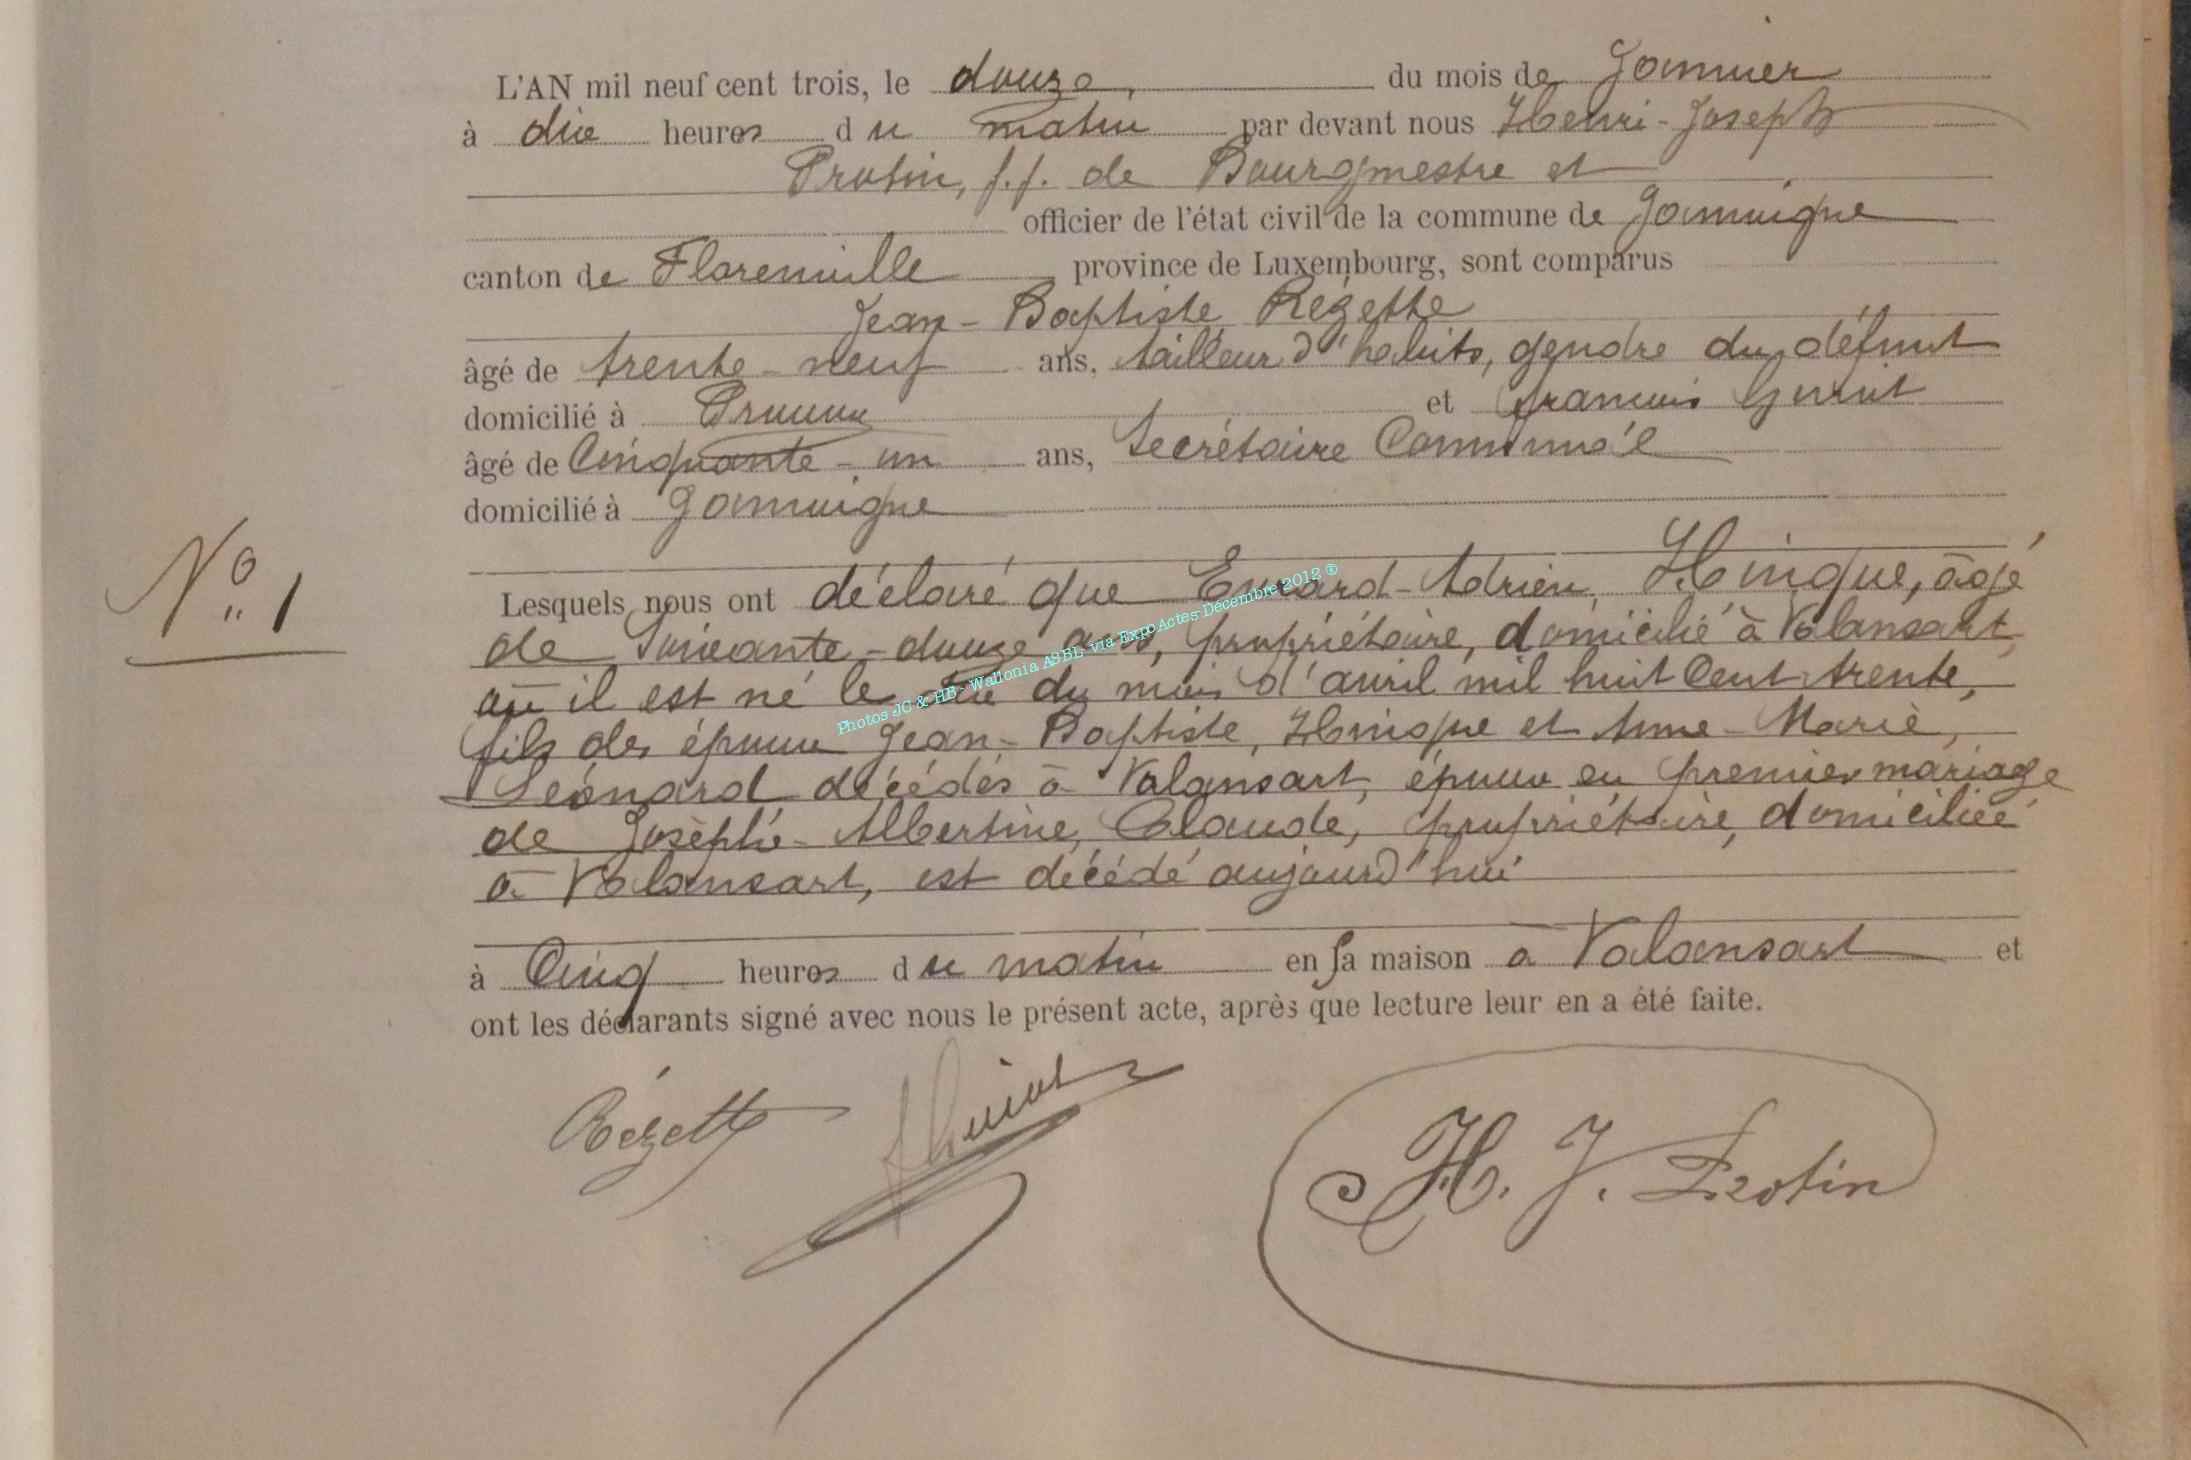 L'AN mil neuf cent trois, le douze, du mois de Janvier
à dix heures du matin par devant nous Henri-Joseph
Protin, f.f. de Bourgmestre et
officier de l'état civil de la commune de Jamoigne
canton de Florenville province de Luxembourg, sont comparus
Jean-Baptiste Rézette
âgé de trente-neuf ans, tailleur d'habits, gendre du défunt
domicilié à Prouvy et François Guriot
âgé de Cinquante-un ans, Secrétaire Communal
domicilié à Jamoigne
N° 1
Lesquels nous ont déclaré que Evrard-Adrien, Hinque, âgé
de Soixante-douze ans, propriétaire, domicilié à Valansart,
où il est né le du mois d'avril mil huit Cent trente,
fils des époux Jean-Baptiste, Hinque et Anne-Marie,
Léonard décédés à Valansart, époux en premier mariage
de Josèphe-Albertine, Claude, propriétaire, domiciliée
à Valansart, est décédé aujourd'hui
à Cinq heures du matin en sa maison à Valansart et
ont les déclarants signé avec nous le présent acte, après que lecture leur en a été faite.
Rézette
H. J. Protin
Photos JC & HB - Wallonia ASBL via ExpoActes Décembre 2012 ®